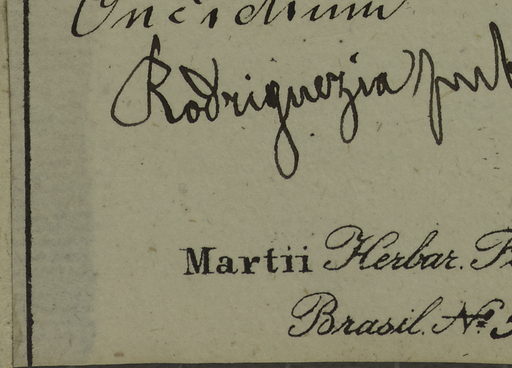 Oncidium
Rodriguezia pub
Martii Herbar. F
Brasil. No